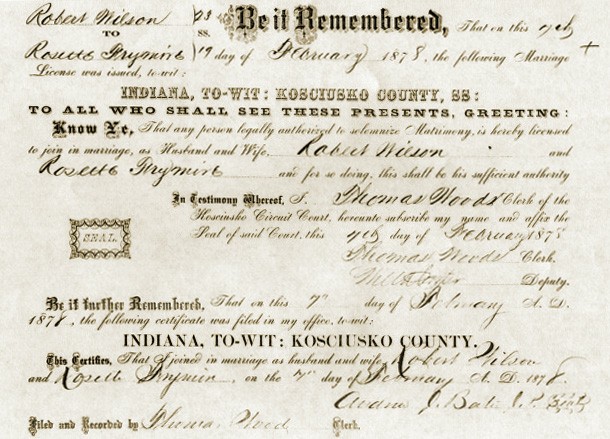 Robert Wilson } 23 Be it Remembered, That on this 7th
TO SS.
Rosetta Frymire } 19 day of February 1878, the following Marriage
License was issued, to-wit:
INDIANA, TO-WIT: KOSCIUSKO COUNTY, SS:
TO ALL WHO SHALL SEE THESE PRESENTS, GREETING:
Know Ye, That any person legally authorized to solemnize Matrimony, is hereby licensed
to join in marriage, as Husband and Wife, Robert Wilson and
Rosetta Frymire and for so doing, this shall be his sufficient authority
In Testimony Whereof, I, Thomas Woods Clerk of the
Kosciusko Circuit Court, hereunto subscribe my name and affix the
SEAL. Seal of said Court, this 7th day of February 1878
Thomas Woods Clerk.
Deputy.
Be it further Remembered, That on this 7th day of February A. D.
1878, the following certificate was filed in my office, to-wit:
INDIANA, TO-WIT: KOSCIUSKO COUNTY.
This Certifies, That I joined in marriage as husband and wife Robert Wilson
and Rosetta Frymire, on the 7th day of February A. D. 1878.
J. P.
Filed and Recorded by Thomas Wood Clerk.